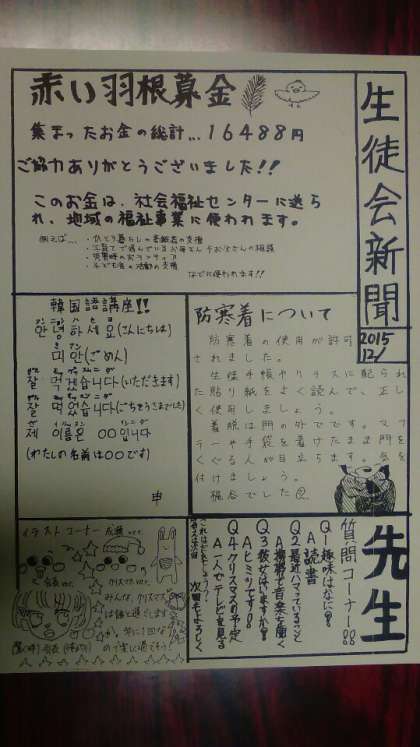 生徒会新聞
2015
12/
赤い羽根募金
集まったお金の総計...16488円
ご協力ありがとうございました!!
このお金は、社会福祉センターに送ら
れ、地域の福祉事業に使われます。
例えば...
・ひとり暮らしの高齢者の支援
・災害時のボランティア
・子ども会の活動の支援
などに使われます!!
韓国語講座!!
안녕하세요(こんにちは)
미안(ごめん)
잘 먹겠습니다(いただきます)
잘 먹었습니다(ごちそうさまでした)
제 이름은 〇〇입니다
(わたしの名前は〇〇です)
防寒着について
防寒着の使用が許可
されました。
生徒手帳やクラスに配られ
た貼り紙をよく読んで、正し
く使用しましょう。
着脱は門の外でです。マフ
ラーや手袋を着けたまま門を
くぐる人が目立ちます。気を
付けましょう。
先生
質問コーナー!!
Q1 趣味はなに?
A 読書
Q2 最近ハマっていること
A 携帯で音楽を聞く
Q3 彼女はいますか?
A ヒミツです!!
Q4 クリスマスの予定
A 一人でテレビを見る
次回もよろしく
イラストコーナー
クリスマス ver.
みんな、クリスマス